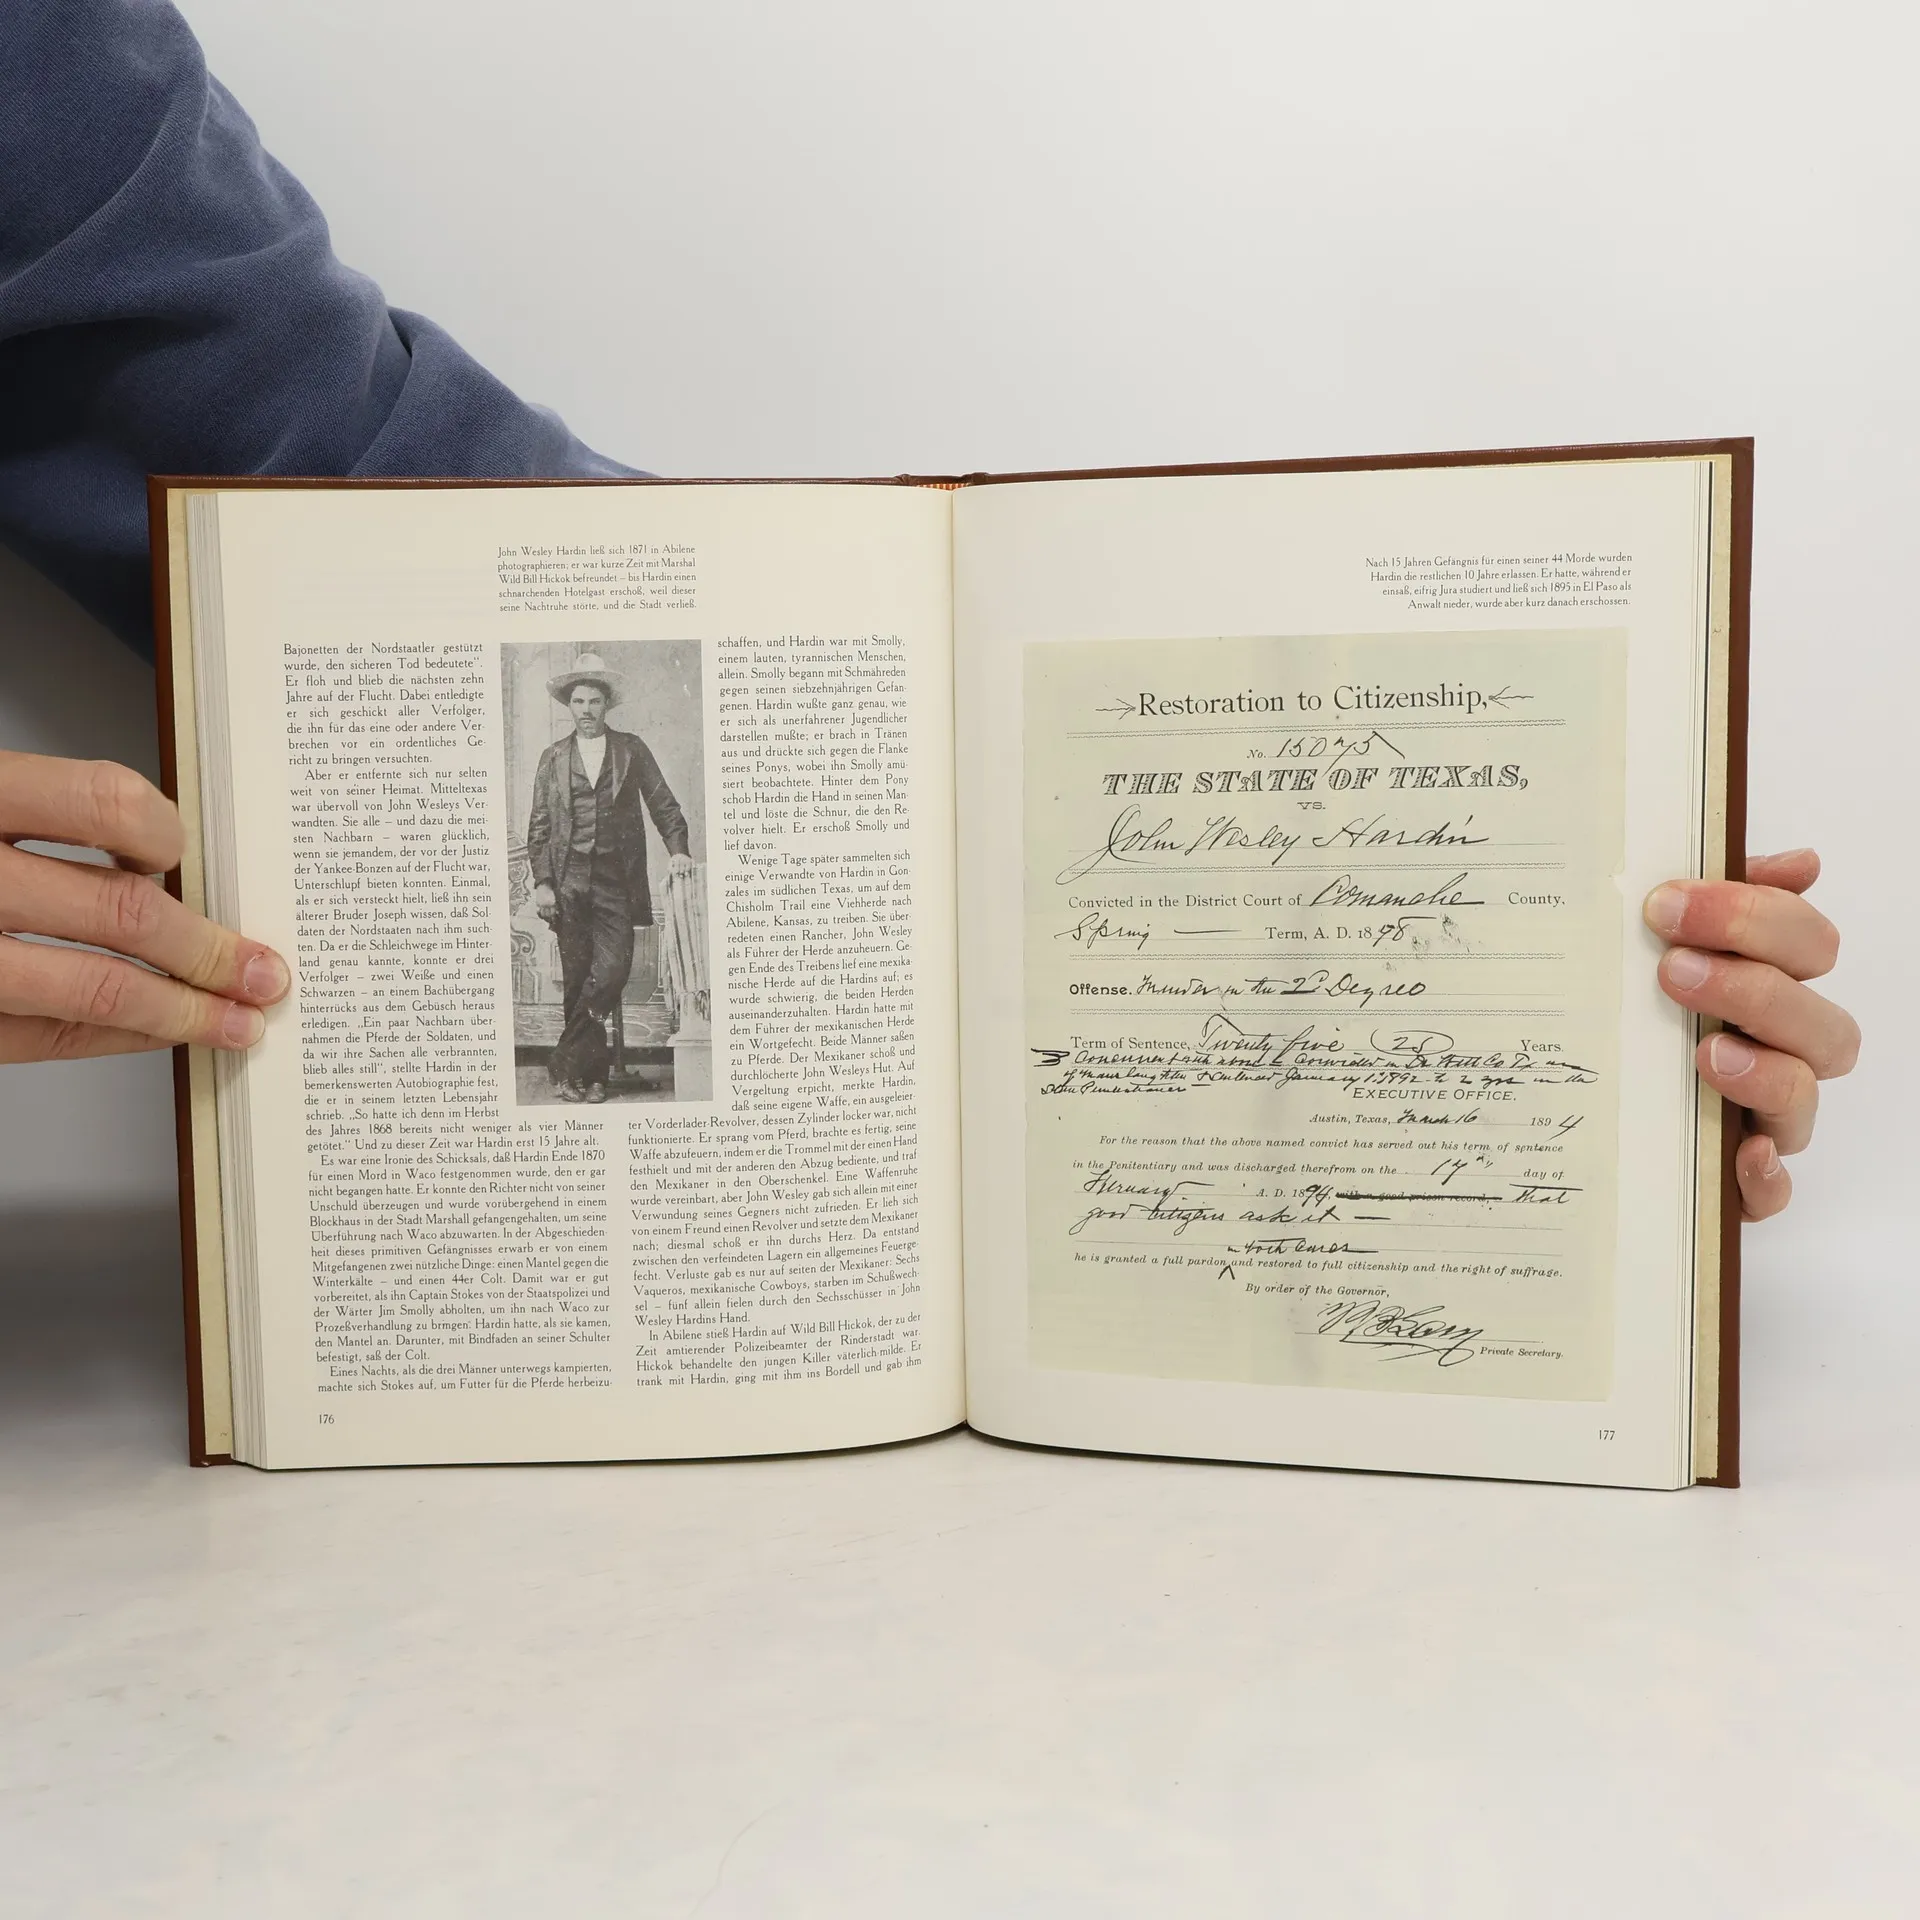 John Wesley Hardin ließ sich 1871 in Abilene
photographieren; er war kurze Zeit mit Marshal
Wild Bill Hickok befreundet – bis Hardin einen
schnarchenden Hotelgast erschoß, weil dieser
seine Nachtruhe störte, und die Stadt verließ.
Bajonetten der Nordstaatler gestützt
wurde, den sicheren Tod bedeutete".
Er floh und blieb die nächsten zehn
Jahre auf der Flucht. Dabei entledigte
er sich geschickt aller Verfolger,
die ihn für das eine oder andere Ver-
brechen vor ein ordentliches Ge-
richt zu bringen versuchten.
Aber er entfernte sich nur selten
weit von seiner Heimat. Mitteltexas
war übervoll von John Wesleys Ver-
wandten. Sie alle – und dazu die mei-
sten Nachbarn – waren glücklich,
wenn sie jemandem, der vor der Justiz
der Yankee-Bonzen auf der Flucht war,
Unterschlupf bieten konnten. Einmal,
als er sich versteckt hielt, ließ ihn sein
älterer Bruder Joseph wissen, daß Sol-
daten der Nordstaaten nach ihm such-
ten. Da er die Schleichwege im Hinter-
land genau kannte, konnte er drei
Verfolger – zwei Weiße und einen
Schwarzen – an einem Bachübergang
hinterrücks aus dem Gebüsch heraus
erledigen. „Ein paar Nachbarn über-
nahmen die Pferde der Soldaten, und
da wir ihre Sachen alle verbrannten,
blieb alles still", stellte Hardin in der
bemerkenswerten Autobiographie fest,
die er in seinem letzten Lebensjahr
schrieb. „So hatte ich denn im Herbst
des Jahres 1868 bereits nicht weniger als vier Männer
getötet." Und zu dieser Zeit war Hardin erst 15 Jahre alt.
Es war eine Ironie des Schicksals, daß Hardin Ende 1870
für einen Mord in Waco festgenommen wurde, den er gar
nicht begangen hatte. Er konnte den Richter nicht von seiner
Unschuld überzeugen und wurde vorübergehend in einem
Blockhaus in der Stadt Marshall gefangengehalten, um seine
Überführung nach Waco abzuwarten. In der Abgeschieden-
heit dieses primitiven Gefängnisses erwarb er von einem
Mitgefangenen zwei nützliche Dinge: einen Mantel gegen die
Winterkälte – und einen 44er Colt. Damit war er gut
vorbereitet, als ihn Captain Stokes von der Staatspolizei und
der Wärter Jim Smolly abholten, um ihn nach Waco zur
Prozeßverhandlung zu bringen: Hardin hatte, als sie kamen,
den Mantel an. Darunter, mit Bindfaden an seiner Schulter
befestigt, saß der Colt.
Eines Nachts, als die drei Männer unterwegs kampierten,
machte sich Stokes auf, um Futter für die Pferde herbeizu-
schaffen, und Hardin war mit Smolly,
einem lauten, tyrannischen Menschen,
allein. Smolly begann mit Schmähreden
gegen seinen siebzehnjährigen Gefan-
genen. Hardin wußte ganz genau, wie
er sich als unerfahrener Jugendlicher
darstellen mußte; er brach in Tränen
aus und drückte sich gegen die Flanke
seines Ponys, wobei ihn Smolly amü-
siert beobachtete. Hinter dem Pony
schob Hardin die Hand in seinen Man-
tel und löste die Schnur, die den Re-
volver hielt. Er erschoß Smolly und
lief davon.
Wenige Tage später sammelten sich
einige Verwandte von Hardin in Gon-
zales im südlichen Texas, um auf dem
Chisholm Trail eine Viehherde nach
Abilene, Kansas, zu treiben. Sie über-
redeten einen Rancher, John Wesley
als Führer der Herde anzuheuern. Ge-
gen Ende des Treibens lief eine mexika-
nische Herde auf die Hardins auf; es
wurde schwierig, die beiden Herden
auseinanderzuhalten. Hardin hatte mit
dem Führer der mexikanischen Herde
ein Wortgefecht. Beide Männer saßen
zu Pferde. Der Mexikaner schoß und
durchlöcherte John Wesleys Hut. Auf
Vergeltung erpicht, merkte Hardin,
daß seine eigene Waffe, ein ausgeleier-
ter Vorderlader-Revolver, dessen Zylinder locker war, nicht
funktionierte. Er sprang vom Pferd, brachte es fertig, seine
Waffe abzufeuern, indem er die Trommel mit der einen Hand
festhielt und mit der anderen den Abzug bediente, und traf
den Mexikaner in den Oberschenkel. Eine Waffenruhe
wurde vereinbart, aber John Wesley gab sich allein mit einer
Verwundung seines Gegners nicht zufrieden. Er lieh sich
von einem Freund einen Revolver und setzte dem Mexikaner
nach; diesmal schoß er ihn durchs Herz. Da entstand
zwischen den verfeindeten Lagern ein allgemeines Feuerge-
fecht. Verluste gab es nur auf seiten der Mexikaner: Sechs
Vaqueros, mexikanische Cowboys, starben im Schußwech-
sel – fünf allein fielen durch den Sechsschüsser in John
Wesley Hardins Hand.
In Abilene stieß Hardin auf Wild Bill Hickok, der zu der
Zeit amtierender Polizeibeamter der Rinderstadt war.
Hickok behandelte den jungen Killer väterlich-milde. Er
trank mit Hardin, ging mit ihm ins Bordell und gab ihm
176
Nach 15 Jahren Gefängnis für einen seiner 44 Morde wurden
Hardin die restlichen 10 Jahre erlassen. Er hatte, während er
einsaß, eifrig Jura studiert und ließ sich 1895 in El Paso als
Anwalt nieder, wurde aber kurz danach erschossen.
Restoration to Citizenship,
No. 15075
THE STATE OF TEXAS,
VS.
John Wesley Hardin
Convicted in the District Court of Comanche County,
Spring Term, A. D. 1878
Offense. Murder in the 2d Degree
Term of Sentence, Twenty five (25) Years.
Concurrent with above – Convicted in De Witt Co Tx
of Manslaughter & sentenced January 1 1892 to 2 yrs in the
EXECUTIVE OFFICE.
Austin, Texas, March 16 1894
For the reason that the above named convict has served out his term of sentence
in the Penitentiary and was discharged therefrom on the 17th day of
February A. D. 1894, with a good prison record, that
good citizens ask it —
in both cases
he is granted a full pardon and restored to full citizenship and the right of suffrage.
By order of the Governor,
Private Secretary.
177